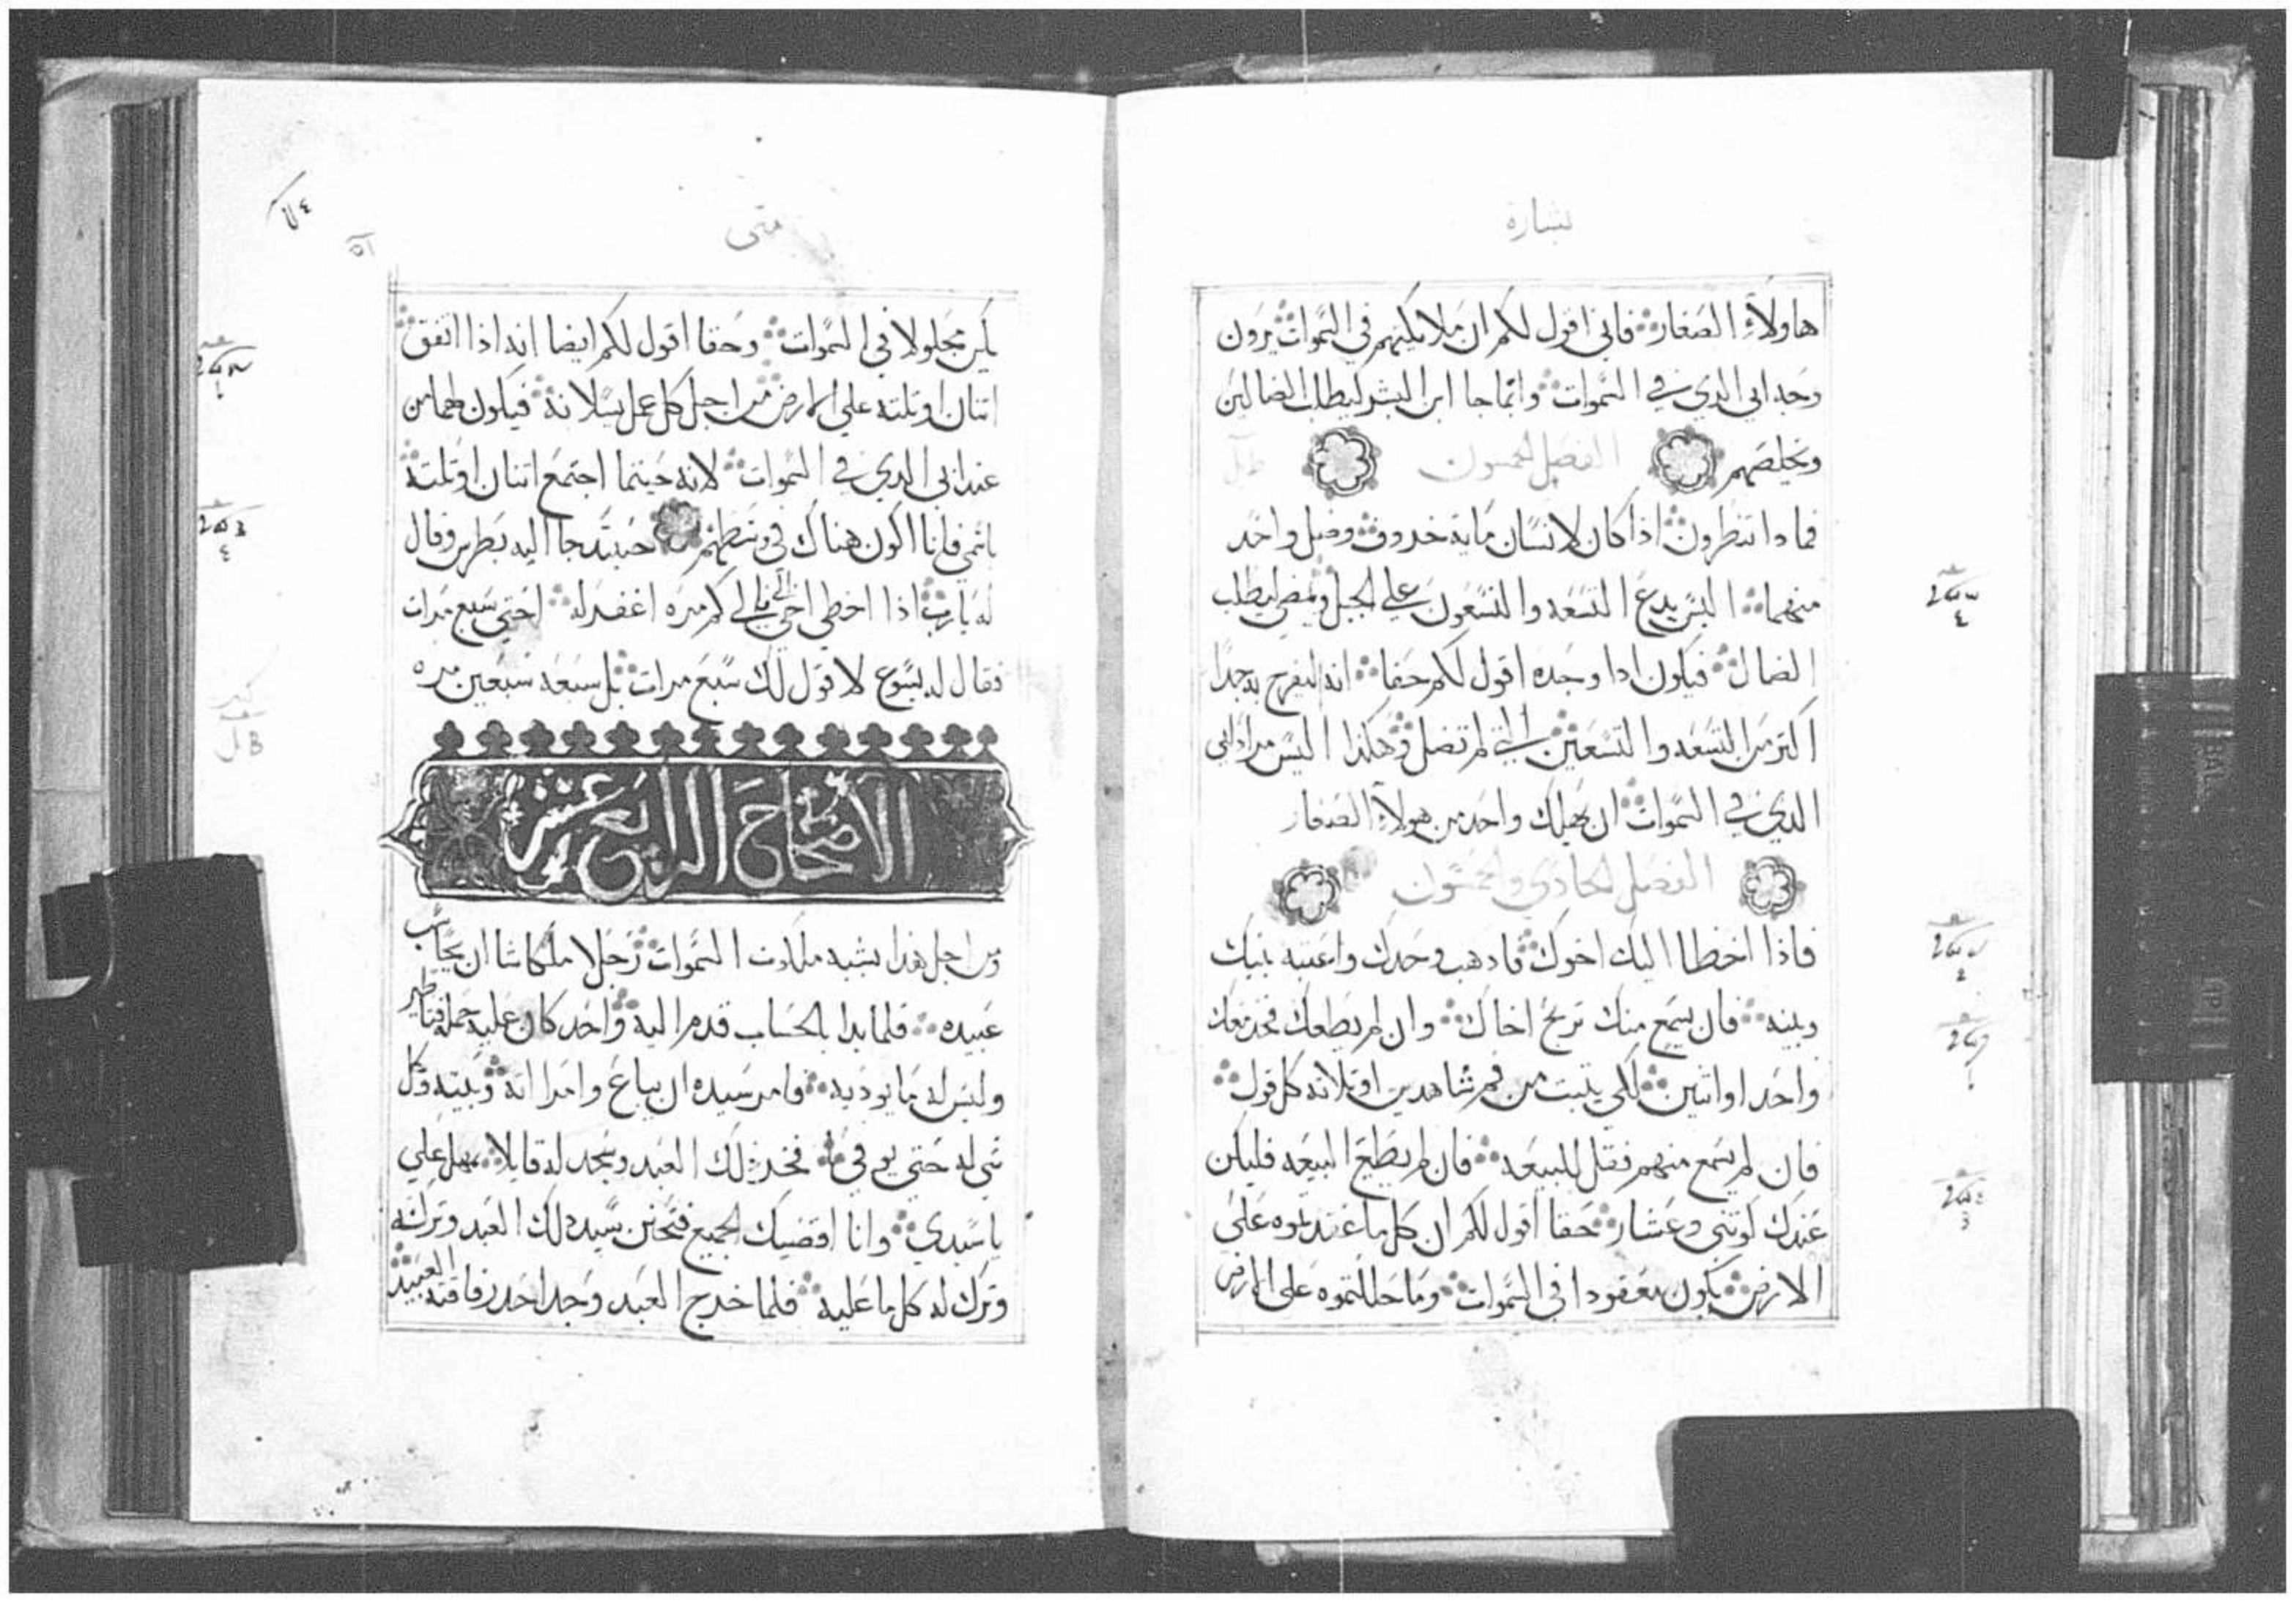 بشارة
هاولاء الصغار فاني اقول لكم ان ملايكتهم في السموات يرون
وجه ابي الدي في السموات وانما جا ابن البشر ليطلب الضالين
ويخلصهم الفصل الخمسون
فما دا تنظرون ادا كان لانسان ماية خروف وضل واحد
منهما اليس يدع التسعه والتسعون علي الجبل ويمضي ليطلب
الضال فيكون ادا وجده اقول لكم حقا انه ليفرح به جدا
اكتر من التسعه والتسعين التي لم تضل وهكدا اليس مراد ابي
الدي في السموات ان يهلك واحد من هولاء الصغار
الفصل الحادي والخمسون
فاذا اخطا اليك اخوك فادهب وحدك واعتبه بينك
وبينه فان سمع منك تربح اخاك وان لم يطعك فخد معك
واحد او اتنين لكي يتبت من فم شاهدين او تلاته كل قول
فان لم يسمع منهم فقل للبيعه فان لم يطع البيعه فليكن
عندك كوتني وعشار حقا اقول لكم ان كل ما عقدتموه علي
الارض يكون معقودا في السموات وما حللتموه علي الارض
متي
يكن محلولا في السموات وحقا اقول لكم ايضا انه اذا اتفق
اتنان او تلته علي الارض من اجل كل عمل يسلانه فيكون لهما من
عند ابي الدي في السموات لانه حيتما اجتمع اتنان او تلته
باسمي فانا اكون هناك في وسطهم حينيد جا اليه بطرس وقال
له يا رب اذا اخطي اخي الي كم مره اغفر له احتي سبع مرات
فقال له يسوع لا قول لك سبع مرات بل سبعه سبعين مره
الاصحاح الرابع عشر
من اجل هدا يشبه ملكوت السموات رجلا ملكا شا ان يحاسب
عبيده فلما بدا بالحساب قدم اليه واحد كان عليه جمله قناطير
وليس له ما يوديه فامر سيده ان يباع وامراته وبنيه وكل
شي له حتي يوفي فخر دلك العبد وسجد له قايلا تمهل علي
يا سيدي وانا اقضيك الجميع فتحنن سيد دلك العبد وتركه
وترك له كل ما عليه فلما خرج العبد وجد احد رفاقته العبيد